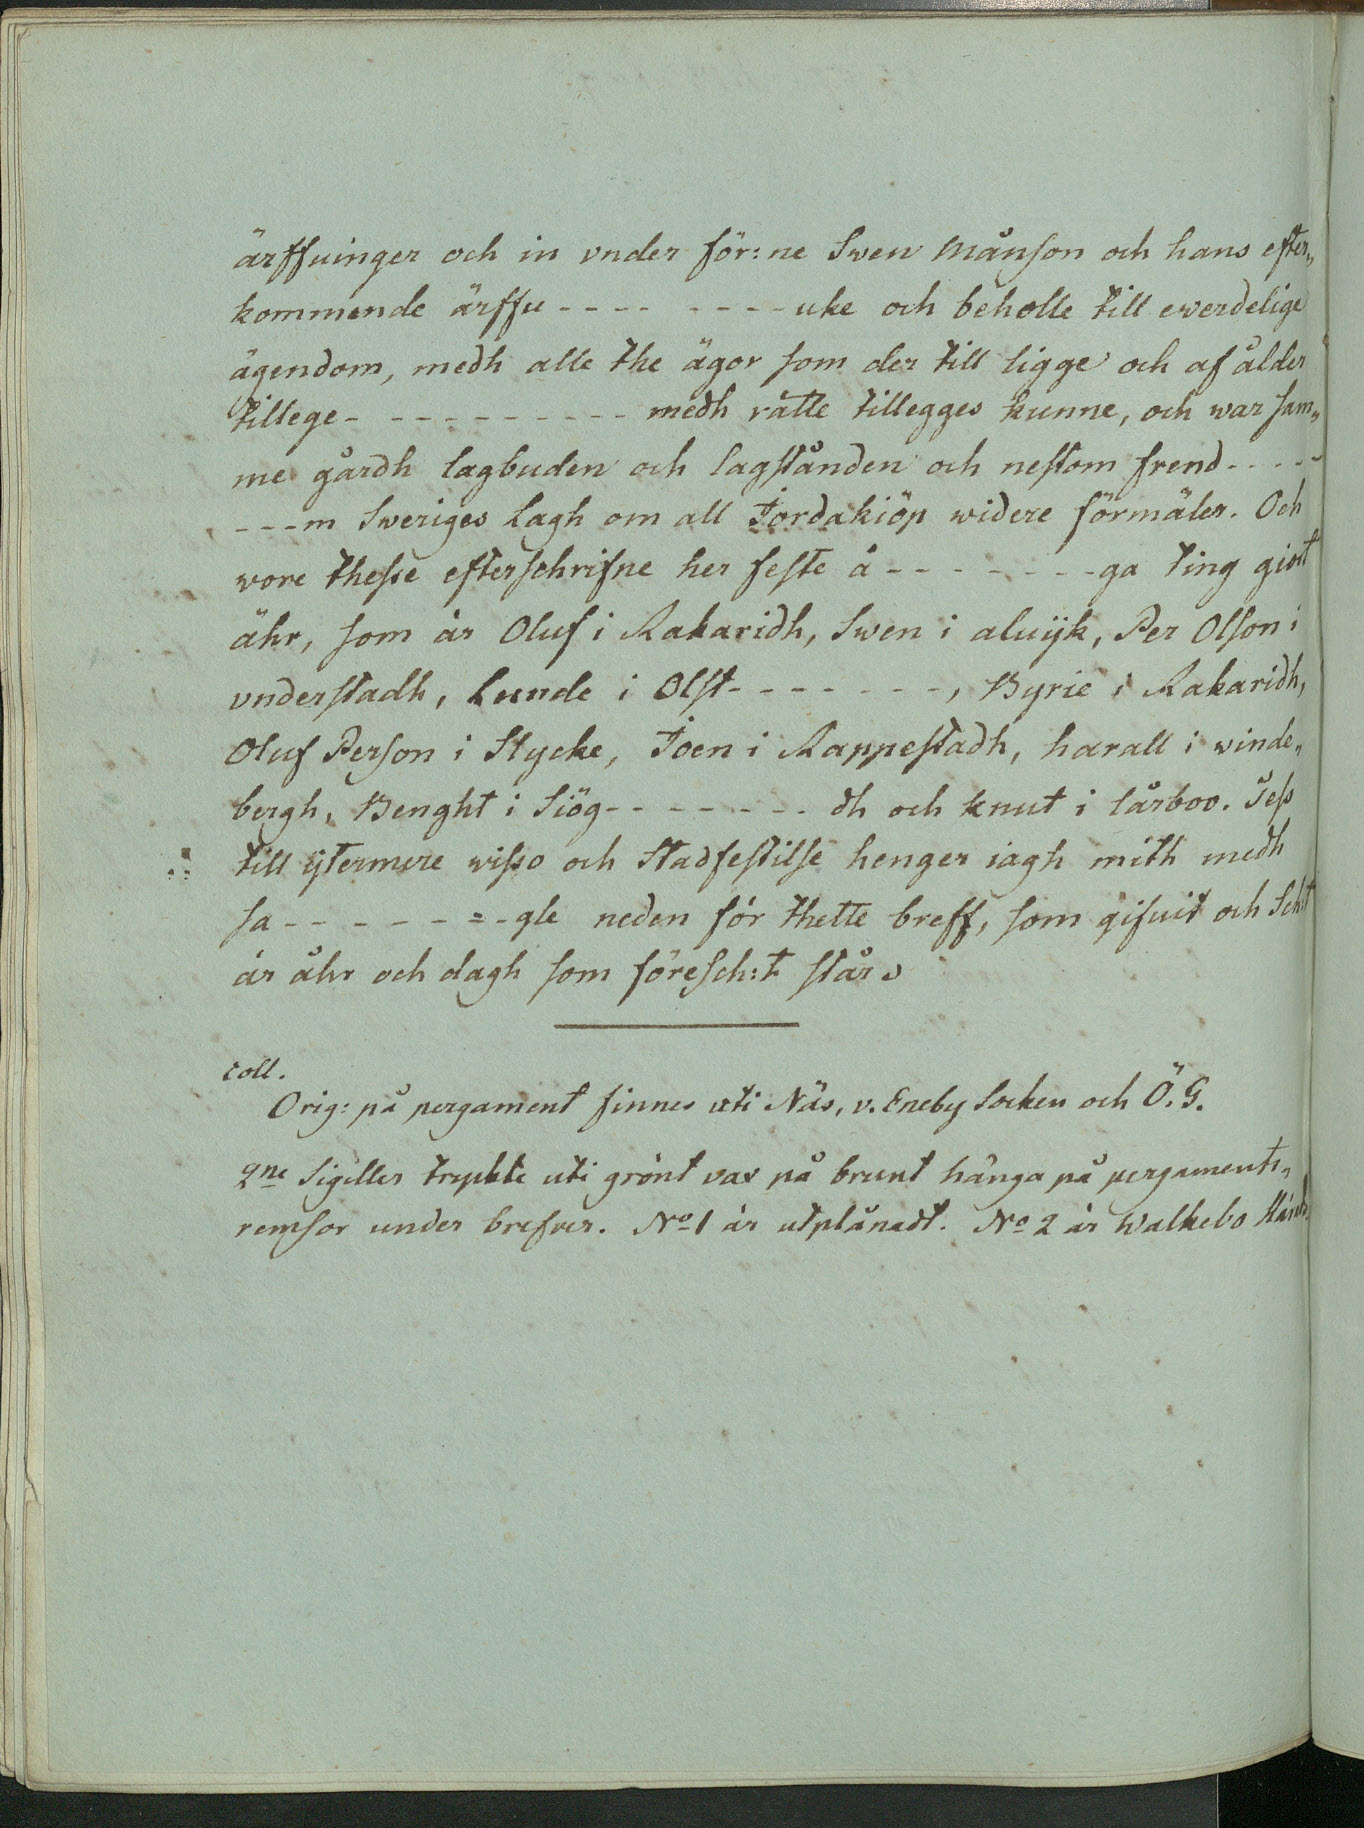 ärffuinger och in vnder för:ne Swen Månson och hans efter„
kommende ärffu - - - - - - - - uke och beholle till ewerdelige
ägendom, medh alle the ägor som der till ligge och af ålder
tillege - - - - - - - - - - medh rätte tillegges kunne, och war sam„
me gårdh lagbuden och lagstånden och nestom frend - - - - -
- - - m Sweriges lagh om all Jordakiöp widere förmäler. Och
wore thesse efterschrifne her feste å - - - - - - - ga ting giort
ähr, som är Oluf i Rakaridh, Swen i aluijk, Per Olson i
vnderstadh, Lunde i Olst - - - - - - - -, Byrie i Rakaridh,
Oluf Person i Stycke, Joen i Rappestadh, harall i winde„
bergh, Benght i Siög - - - - - - - dh och knut i lårboo. Tess
till ÿtermere wisso och Stadfestilse henger iagh mith medh
sa - - - - - - = - gle neden för thette breff, som gifuit och Sch:t
är åhr och dagh som föresch:t står.
coll.
Orig: på pergament finnes uti Näs, v. Eneby Socken och Ö. G.
2ne Sigiller tryckte uti grönt vax på brunt hänga på pergaments„
remsor under brefver. No 1 är utplånadt. No 2 är Walkebo Härads.